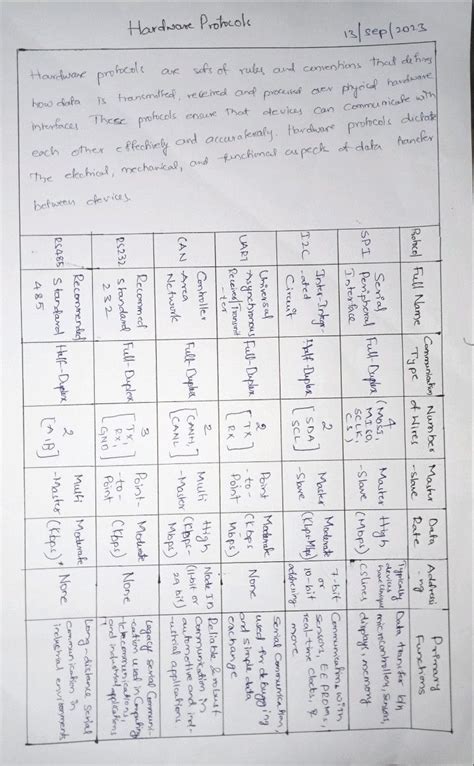 Hardware Protocols
13/sep/2023
Hardware protocols are sets of rules and conventions that defines
how data is transmitted, received and processed over physical hardware
interfaces. These protocols ensure that devices can communicate with
each other effectively and accurately. Hardware protocols dictate
the electrical, mechanical, and functional aspects of data transfer
between devices.
Protocol
Full Name
Communication
Type
Number
of Wires
Master
-Slave
Data
Rate
Addressi
-ng
Primary
Functions
SPI
Serial
Peripheral
Interface
Full-Duplex
4
(MOSI,
MISO,
SCLK,
CS)
Master
-Slave
High
(Mbps)
Typically
devices
have unique
CS lines
Data transfer b/n
microcontrollers, sensors,
displays, memory
I2C
Inter-Integr-
-ated
Circuit
Half-Duplex
2
[SDA
SCL]
Master
-Slave
Moderate
7-bit
or
10-bit
addressing
Communication with
sensors, EEPROMs,
real-time clocks, &
more
UART
Universal
Asynchronous
Receiver/Transmit
-ter
Full-Duplex
2
[TX,
RX]
Point
-to-
Point
Moderate
(Kbps
Mbps)
None
Serial Communication,
used for debugging
and simple data
exchange
CAN
Controller
Area
Network
Full-Duplex
2
[CANH,
CANL]
Multi
-Master
High
Mbps)
Node ID
(11bit or
29 bit)
Reliable & robust
Communication in
automotive and ind-
-ustrial applications
RS232
Recommed
Standard
232
Full-Duplex
3
[TX,
RX,
GND]
Point-
-to-
Point
Moderate
(Kbps)
None
Legacy serial Communi-
cation used in Computing,
telecommunications,
and industrial applications
RS485
Recommended
Standard
485
Half-Duplex
2
[A,B]
Multi
-Master
Moderate
(Kbps)
None
Long-distance serial
communication in
industrial environments